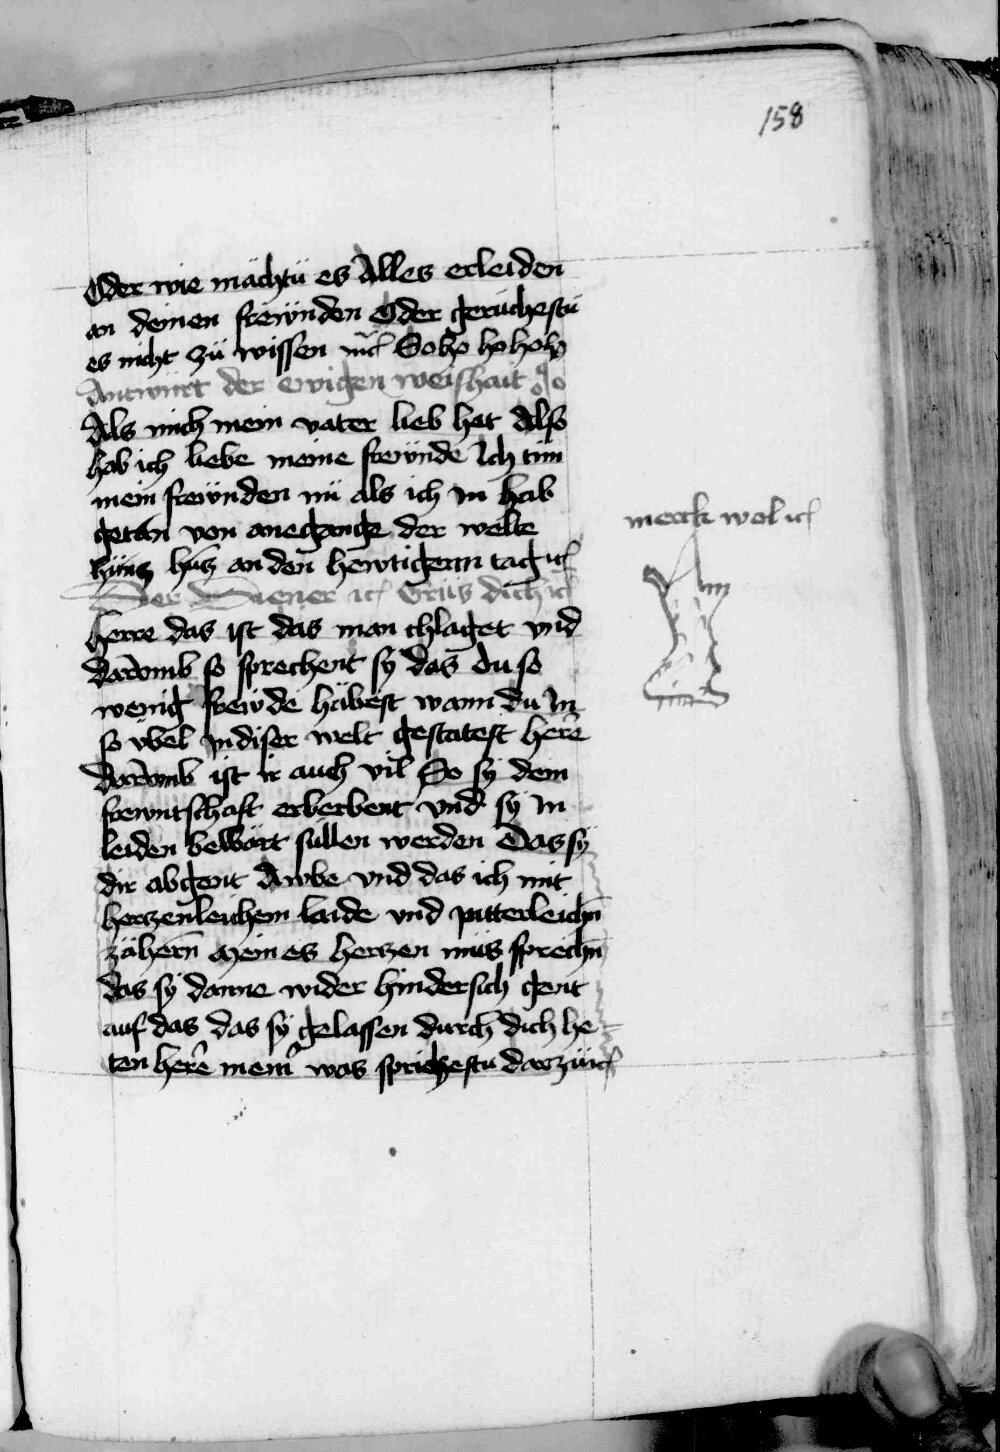 158
Oder wie mächtü es Alles erleiden
an deinen frewnden Oder gerüchestu
es nicht zü wissen
Antwurt der ewigen weishait
Als mich mein vater lieb hat Also
hab ich liebe meine frewnde Ich tün
mein frewnden nü als ich in hab
getan von anegangk der welte
hüntz an den hewtigenn tag etc
merck wol etc
Der Diener etc Grüs dich etc
herre das ist das man chlaget vnd
Darvmb so sprechent sy das du so
wenig frewde häbest wann du in
so vbel in diser welt gestatest herre
Darvmb ist ir auch vil So sy dein
frewntschaft erberbent vnd sy in
leiden bewärt süllen werden Das sy
dir abgent Awbe vnd das ich mit
herczenleichem laide vnd pitterleichn
zähern meines herczen müs sprechn
das sy danne wider hindersich gent
auf das das sy gelassen durch dich he-
ten herre mein was sprichestu darzü etc